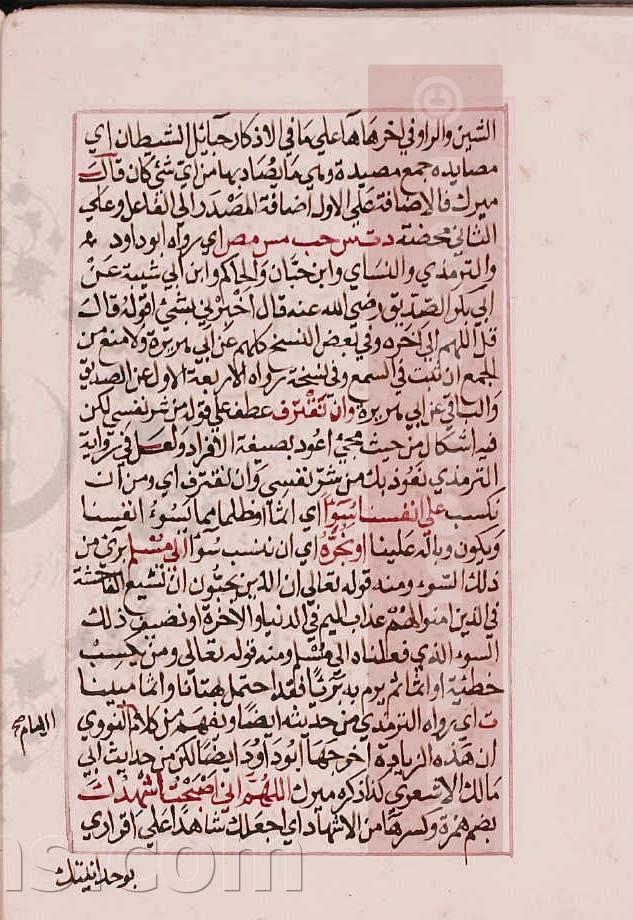 الشين والراء وفي اخرها هاء على ما في الاذكار حبائل الشيطان اي
مصايده جمع مصيدة وهي ما يصاد بها من اي شئ كان قال
ميرك فالاضافة على الاول اضافة المصدر الى الفاعل وعلى
الثاني محضة د ت س حب مس مص اي رواه ابو داود
والترمذي والنساي وابن حبان والحاكم وابن ابي شيبة عن
ابي بكر الصديق رضي الله عنه قال اخبرني بشئ اقوله قال
قل اللهم الى آخره وفي بعض النسخ كلهم عن ابي هريرة ولا منع من
الجمع ان ثبت في السمع وفي نسخة رواه الاربعة الاول عن الصديق
والباقي عن ابي هريرة وان نقترف عطف على قوله من شر نفسي لكن
فيه اشكال من حيث مجئ اعوذ بصيغة الافراد ولعل في رواية
الترمذي نعوذ بك من شر نفسي وان نقترف اي ومن ان
نكسب على انفسنا سوءا اي اثما او ظلما بما كسوء انفسنا
ويكون وباله علينا او نجره اي ان ننسب سوءا الى مسلم برئ من
ذلك السوء ومنه قوله تعالى ان الذين يحبون ان تشيع الفاحشة
في الذين امنوا لهم عذاب اليم في الدنيا والآخرة او نضيف ذلك
السوء الذي فعلناه الى مسلم ومنه قوله تعالى ومن يكسب
خطئية او اثما ثم يرم به بريئا فقد احتمل بهتانا واثما مبينا
ت اي رواه الترمذي من حديثه ايضا ويفهم من كلام النووي
الامام صح
ان هذه الزيادة اخرجها ابو داود ايضا لكن من حديث ابي
مالك الاشعري كذا ذكره ميرك اللهم اني اصبحت اشهدك
بضم همزة وكسر هاء من الاشهاد اي اجعلك شاهدا على اقراري
بوحدانيتك